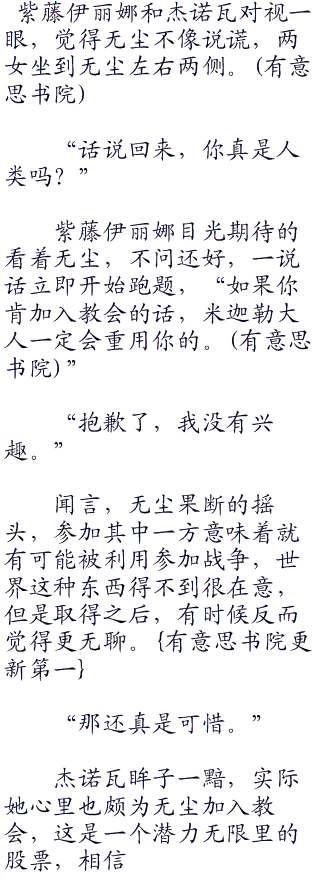 紫藤伊丽娜和杰诺瓦对视一
眼，觉得无尘不像说谎，两
女坐到无尘左右两侧。(有意
思书院)
“话说回来，你真是人
类吗？”
紫藤伊丽娜目光期待的
看着无尘，不问还好，一说
话立即开始跑题，“如果你
肯加入教会的话，米迦勒大
人一定会重用你的。(有意思
书院)”
“抱歉了，我没有兴
趣。”
闻言，无尘果断的摇
头，参加其中一方意味着就
有可能被利用参加战争，世
界这种东西得不到很在意，
但是取得之后，有时候反而
觉得更无聊。{有意思书院更
新第一}
“那还真是可惜。”
杰诺瓦眸子一黯，实际
她心里也颇为无尘加入教
会，这是一个潜力无限里的
股票，相信